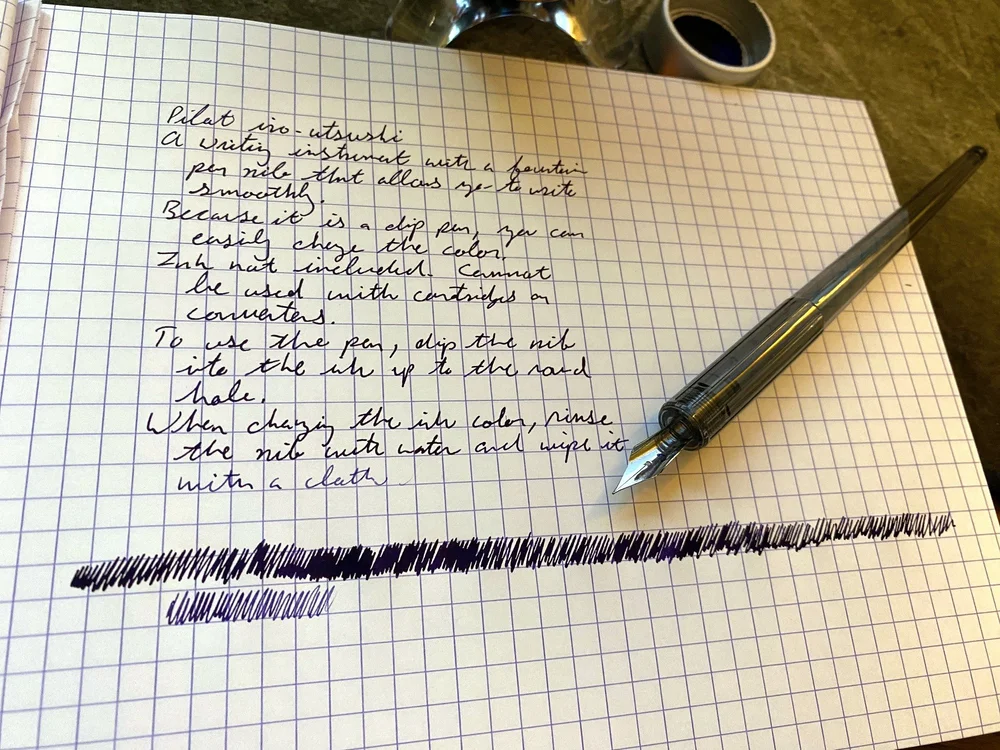 Pilot iro-utsushi
A writing instrument with a fountain
pen nib that allows you to write
smoothly.
Because it is a dip pen, you can
easily change the color.
Ink not included. Cannot
be used with cartridges or
converters.
To use the pen, dip the nib
into the ink up to the round
hole.
When changing the ink color, rinse
the nib with water and wipe it
with a cloth.